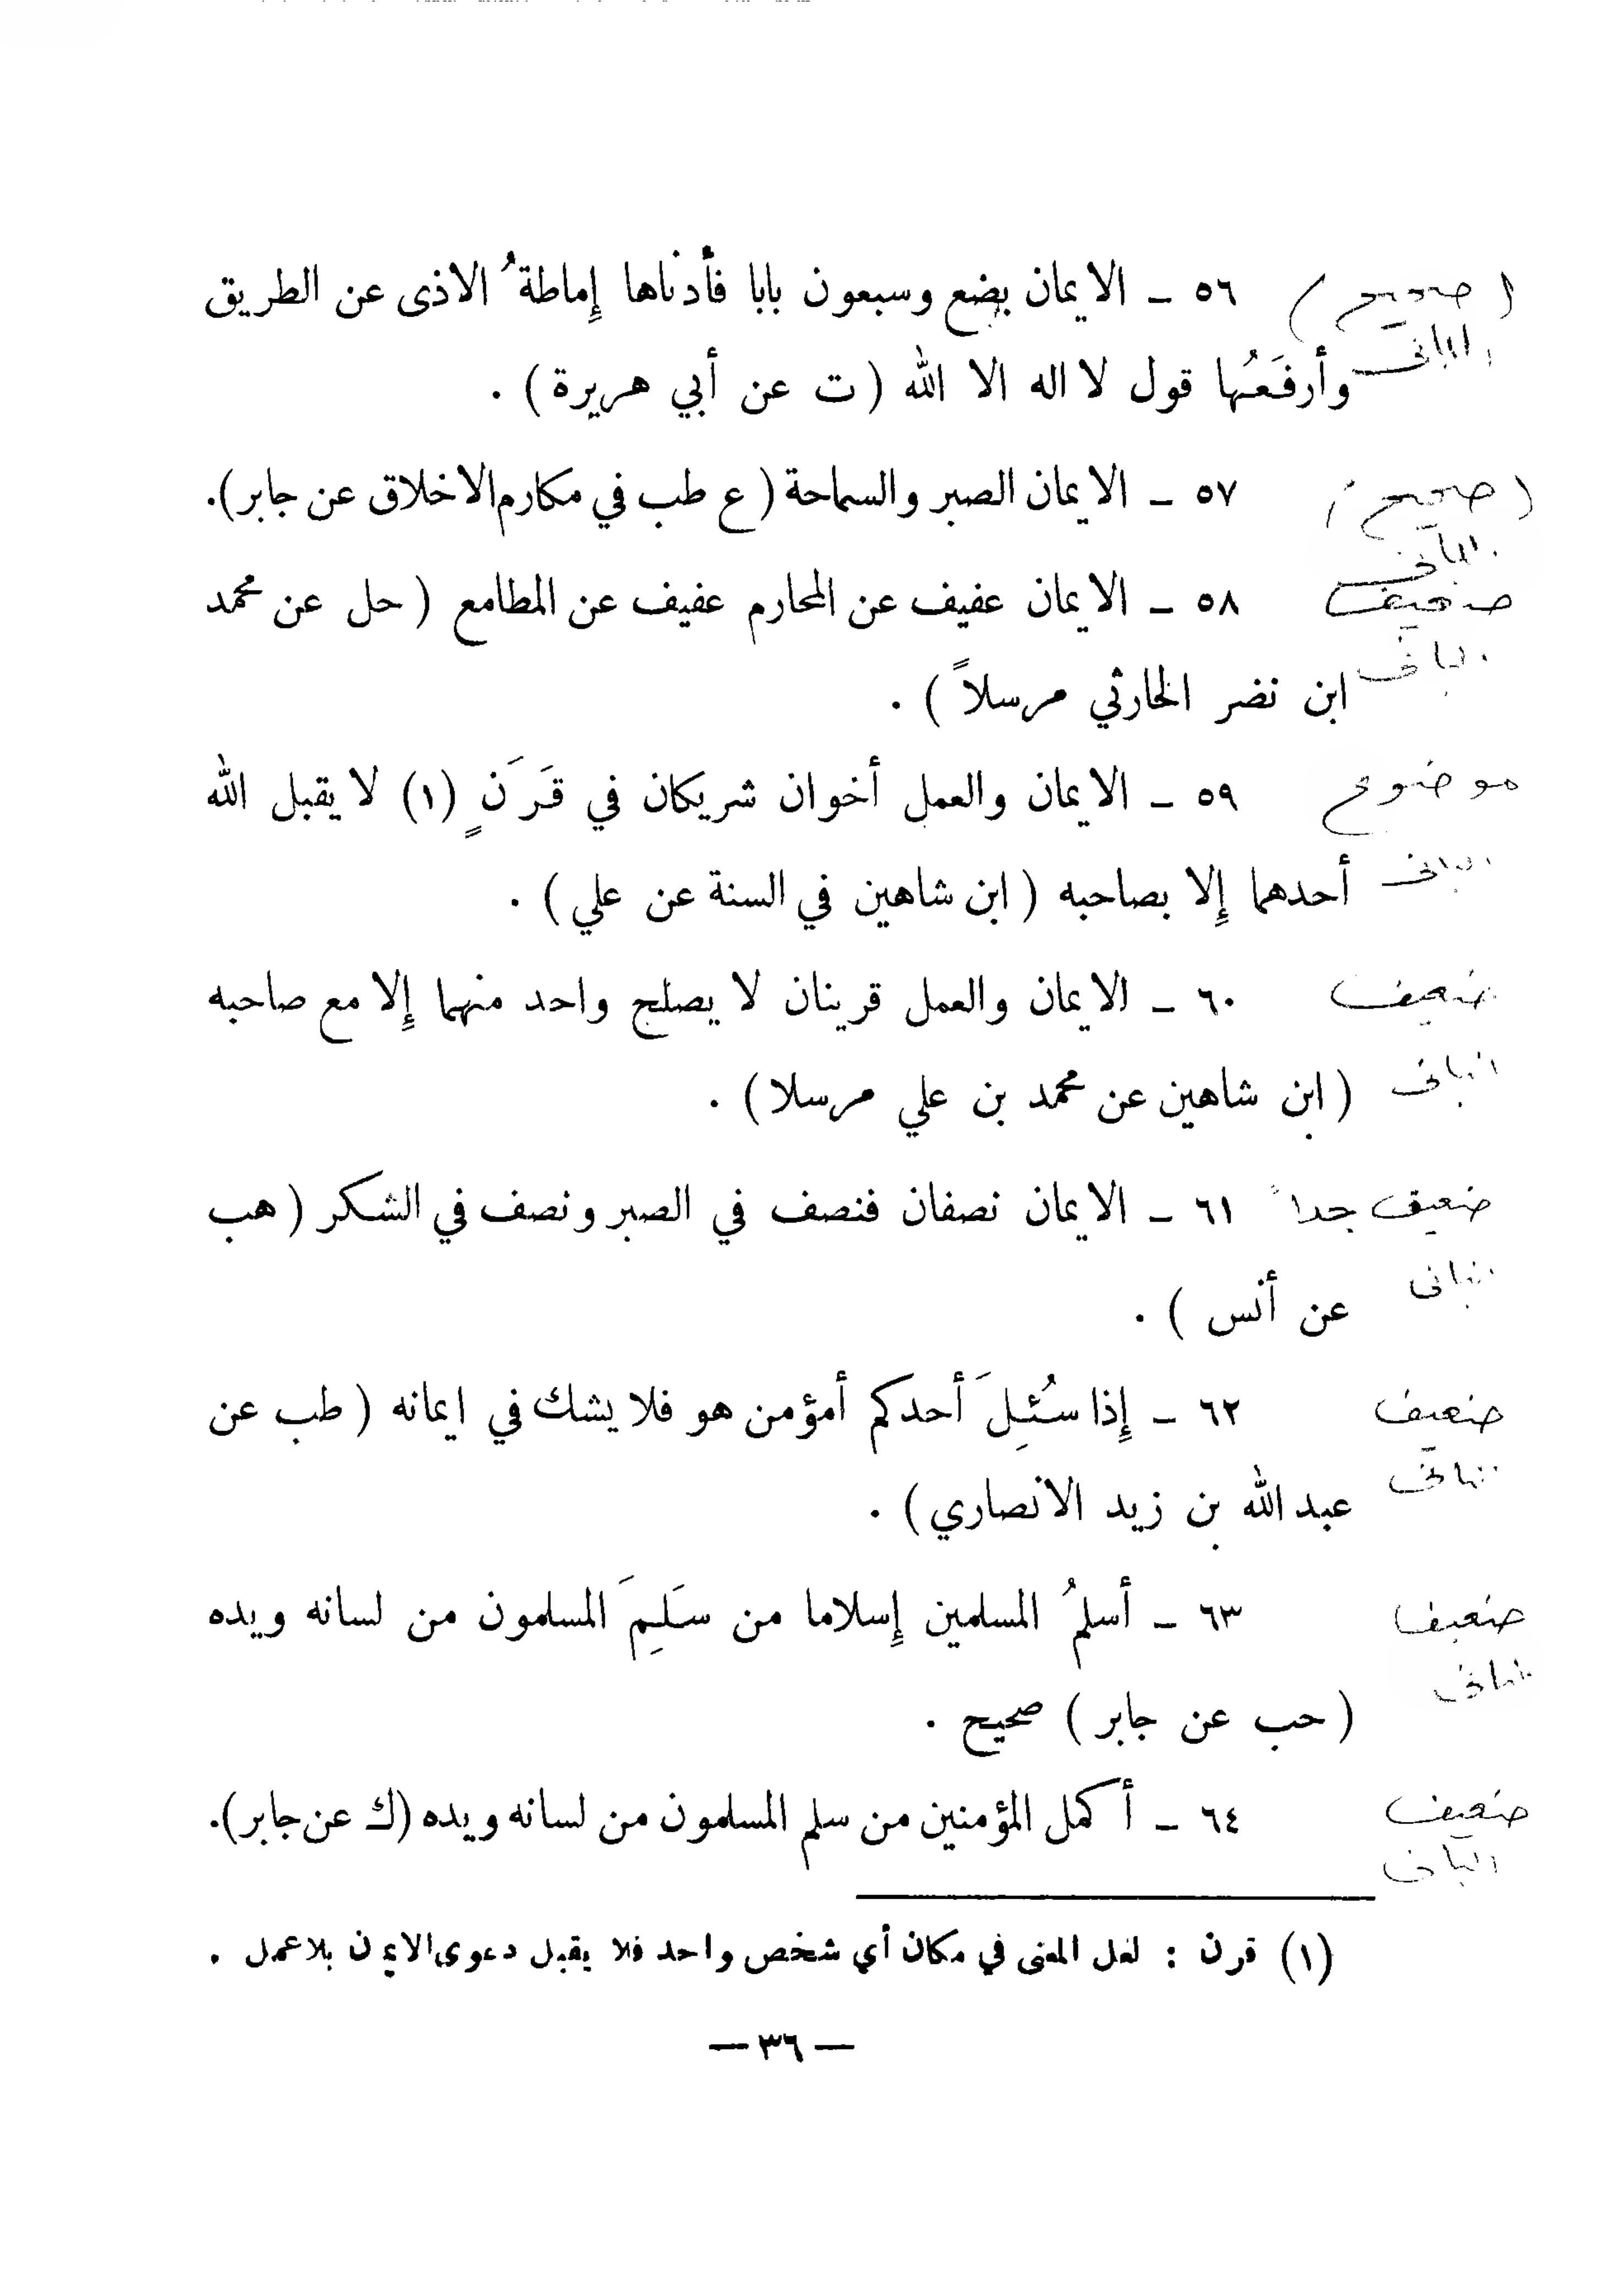 (صحيح) ٥٦ ـ الايمان بضع وسبعون بابا فأدناها إِماطةُ الاذى عن الطريق
البانى وأرفَعُها قول لا اله الا الله ( ت عن أبي هريرة ) .
(صحيح) ٥٧ ـ الايمان الصبر والسماحة ( ع طب في مكارم الاخلاق عن جابر).
البانى
ضعيف ٥٨ ـ الايمان عفيف عن المحارم عفيف عن المطامع ( حل عن محمد
البانى ابن نضر الحارثي مرسلاً ) .
موضوع ٥٩ ـ الايمان والعمل أخوان شريكان في قَرَنٍ (١) لا يقبل الله
البانى أحدهما إِلا بصاحبه ( ابن شاهين في السنة عن علي ) .
ضعيف ٦٠ ـ الايمان والعمل قرينان لا يصلح واحد منهما إِلا مع صاحبه
البانى ( ابن شاهين عن محمد بن علي مرسلا ) .
ضعيف جداً ٦١ ـ الايمان نصفان فنصف في الصبر ونصف في الشكر ( هب
البانى عن أنس ) .
ضعيف ٦٢ ـ إِذا سُئِلَ أحدكم أمؤمن هو فلا يشك في ايمانه ( طب عن
البانى عبد الله بن زيد الانصاري ) .
ضعيف ٦٣ ـ أسلمُ المسلمين إِسلاما من سَلِمَ المسلمون من لسانه ويده
البانى ( حب عن جابر ) صحيح .
ضعيف ٦٤ ـ أكمل المؤمنين من سلم المسلمون من لسانه ويده (ك عن جابر).
البانى
(١) قرن : لعل المعنى في مكان أي شخص واحد فلا يقبل دعوى الايمن بلا عمل .
— ٣٦ —